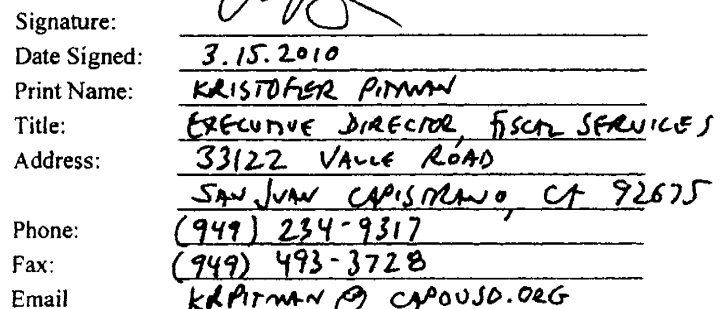 Signature:
Date Signed: 3.15.2010
Print Name: KRISTOFER PITMAN
Title: EXECUTIVE DIRECTOR, FISCAL SERVICES
Address: 33122 VALLE ROAD
SAN JUAN CAPISTRANO, CA 92675
Phone: (949) 234-9317
Fax: (949) 493-3728
Email KRPITMAN @ CAPOUSD.ORG